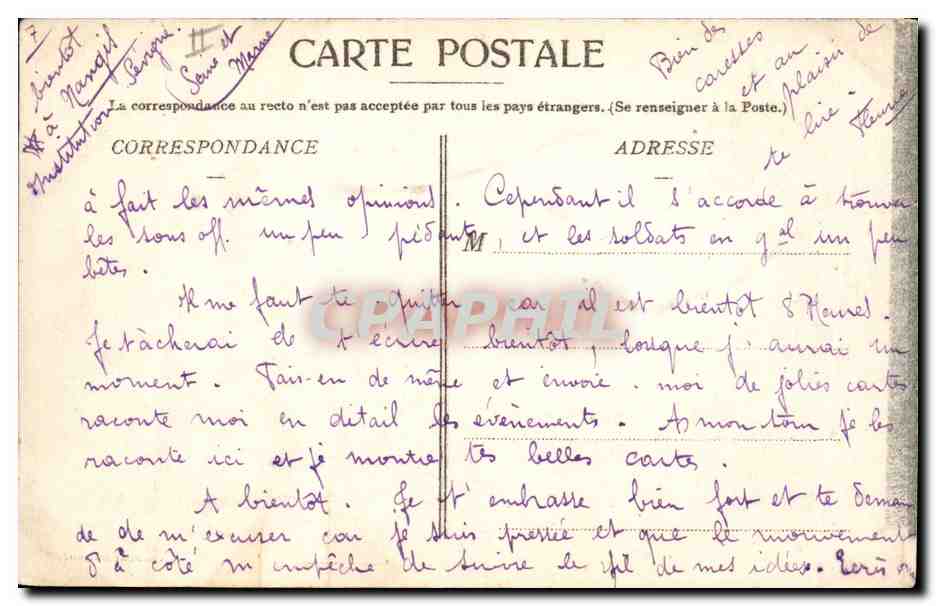 7
bientôt
à Nangis
Institution Sévigné.
II
(Seine et
Marne
CARTE POSTALE
La correspondance au recto n'est pas acceptée par tous les pays étrangers. (Se renseigner à la Poste.)
CORRESPONDANCE
ADRESSE
Bien des
caresses
et au
plaisir de
te lire.
M
à fait les mêmes opinions. Cependant il s'accorde à trouver
les sous off. un peu pédants, et les soldats en gal un peu
bêtes.
Il me faut te quitter car il est bientôt 8 Heures.
Je tâcherai de t'écrire bientôt, lorsque j'aurai un
moment. Fais-en de même et envoie-moi de jolies cartes
raconte moi en détail les évènements. A mon tour je les
raconte ici et je montre tes belles cartes.
A bientôt. Je t'embrasse bien fort et te deman
de de m'excuser car je suis pressée et que le mouvement
d'à côté m'empêche de suivre le fil de mes idées. Ecris
CPAPHIL